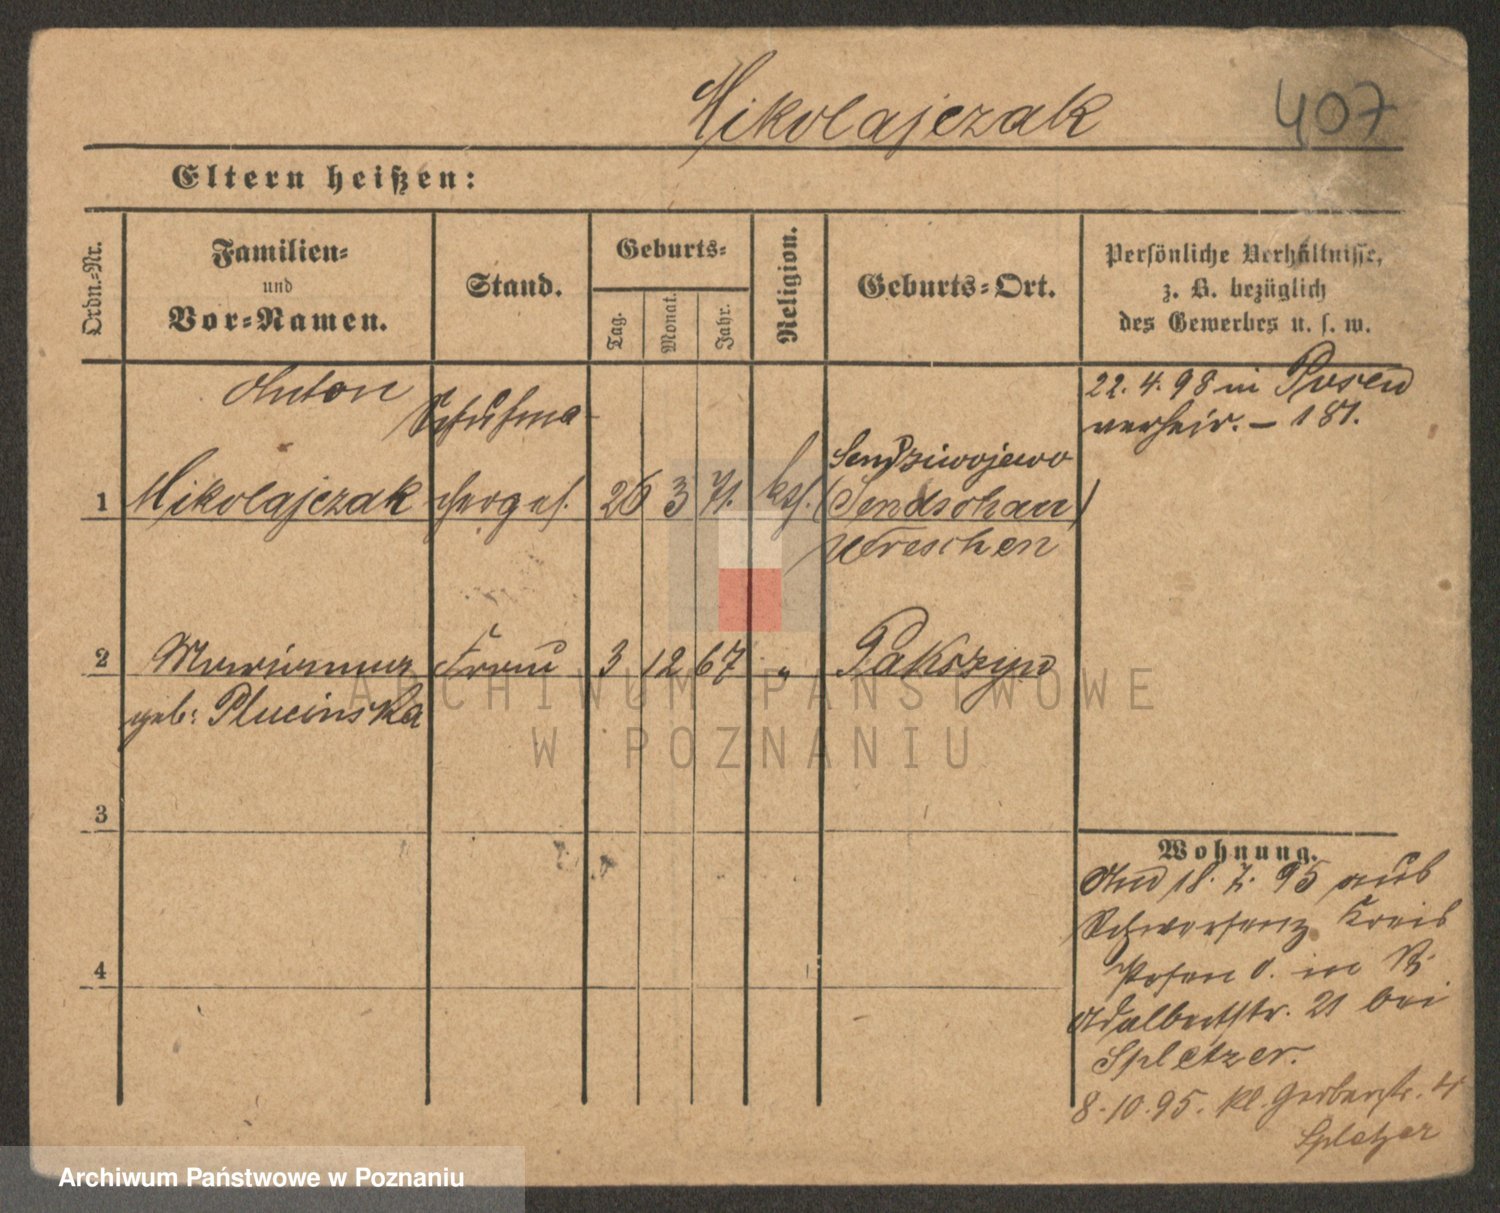 Mikolajczak
407
Eltern heißen:
Ordn.=Nr.
Familien=
und
Vor=Namen.
Stand.
Geburts=
Tag.
Monat.
Jahr.
Religion.
Geburts=Ort.
Persönliche Verhältnisse,
z. B. bezüglich
des Gewerbes u. s. w.
Anton
Schuhma-
22. 4. 98 in Posen
verheir. – 181.
1 Mikolajczak cherges. 26 3 71. kth.
Sendziwojewo
(Sendschau)
Wreschen
2 Marianna Frau 3 12 67 " Pakszyn
geb: Plucinska
3
4
Wohnung.
18. 7. 95 aus
Schwersenz Kreis
Posen O. in
Adalbertstr. 21 bei
Spletzer.
8. 10. 95. Kl. Gerberstr. 4
Spletzer
ARCHIWUM PAŃSTWOWE
W POZNANIU
Archiwum Państwowe w Poznaniu